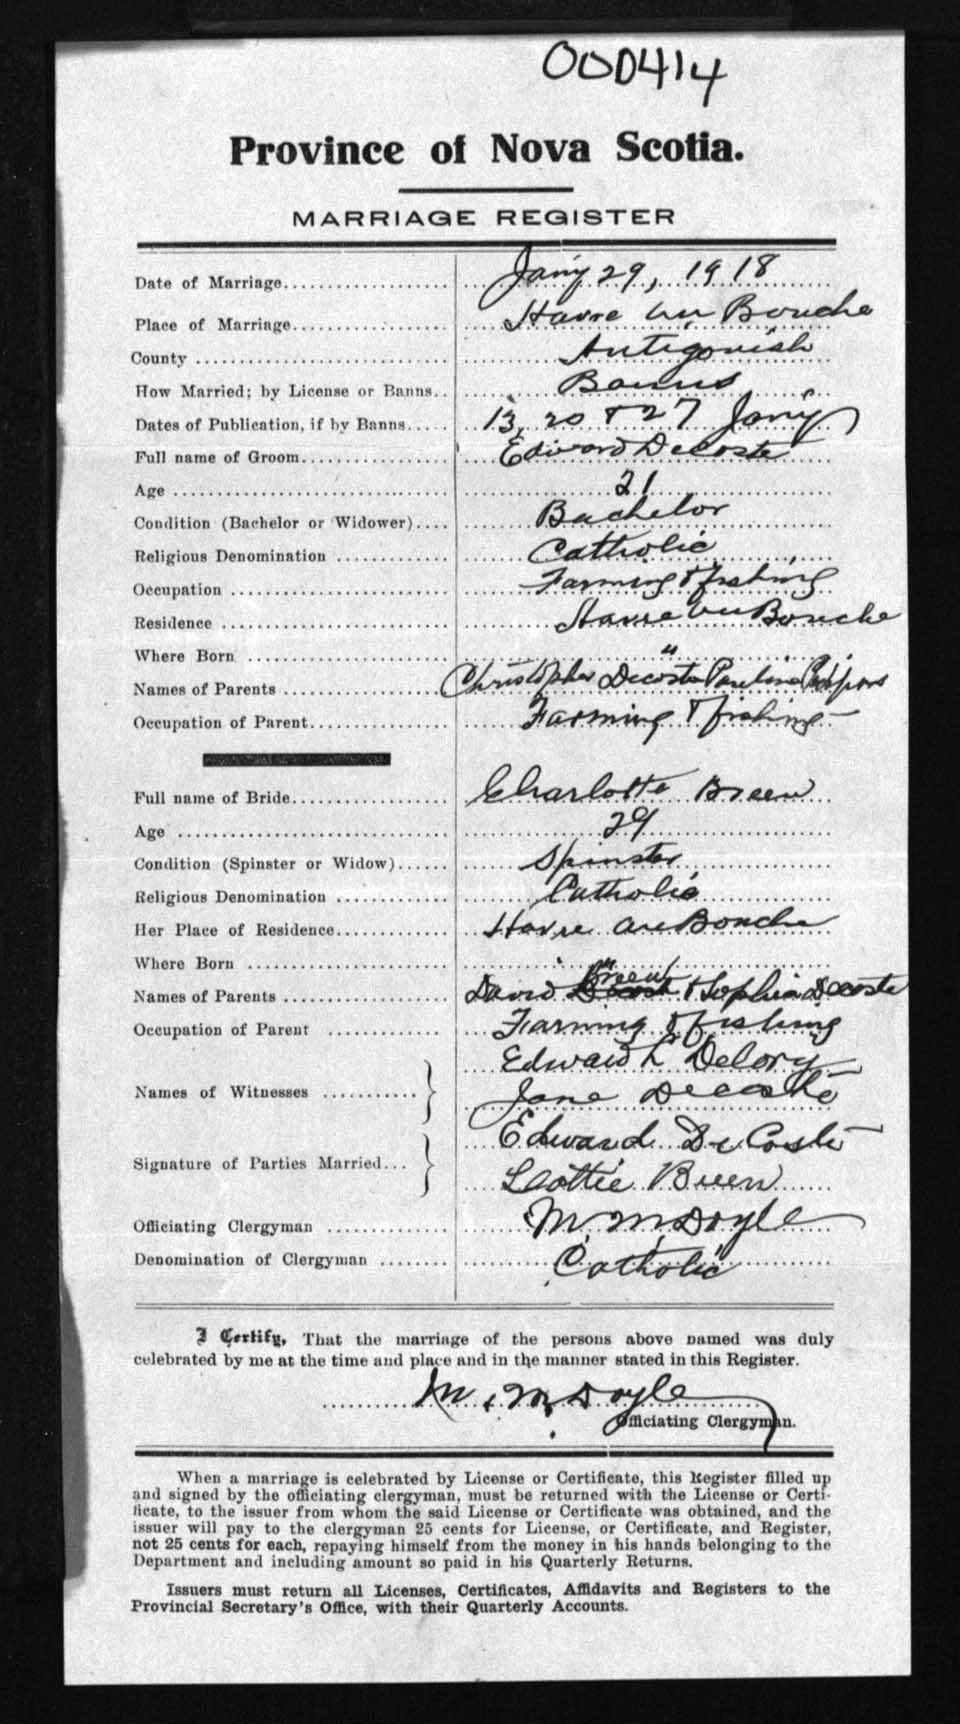 000414
Province of Nova Scotia.
MARRIAGE REGISTER
Date of Marriage Jan'y 29, 1918
Place of Marriage Havre au Bouche
County Antigonish
How Married; by License or Banns Banns
Dates of Publication, if by Banns 13, 20 & 27 Jan'y
Full name of Groom Edward Decoste
Age 21
Condition (Bachelor or Widower) Bachelor
Religious Denomination Catholic
Occupation Farming & fishing
Residence Havre au Bouche
Where Born "
Names of Parents Christopher Decoste Pauline
Occupation of Parent Farming & fishing
Full name of Bride Charlotte Breen
Age 29
Condition (Spinster or Widow) Spinster
Religious Denomination Catholic
Her Place of Residence Havre au Bouche
Where Born "
Names of Parents David Breen & Sophia Decoste
Occupation of Parent Farming & fishing
Names of Witnesses Edward L Delory
Jane Decoste
Signature of Parties Married Edward DeCoste
Lottie Breen
Officiating Clergyman M. M. Doyle
Denomination of Clergyman Catholic
I Certify, That the marriage of the persons above named was duly
celebrated by me at the time and place and in the manner stated in this Register.
M. M. Doyle
Officiating Clergyman.
When a marriage is celebrated by License or Certificate, this Register filled up
and signed by the officiating clergyman, must be returned with the License or Certi-
ficate, to the issuer from whom the said License or Certificate was obtained, and the
issuer will pay to the clergyman 25 cents for License, or Certificate, and Register,
not 25 cents for each, repaying himself from the money in his hands belonging to the
Department and including amount so paid in his Quarterly Returns.
Issuers must return all Licenses, Certificates, Affidavits and Registers to the
Provincial Secretary's Office, with their Quarterly Accounts.